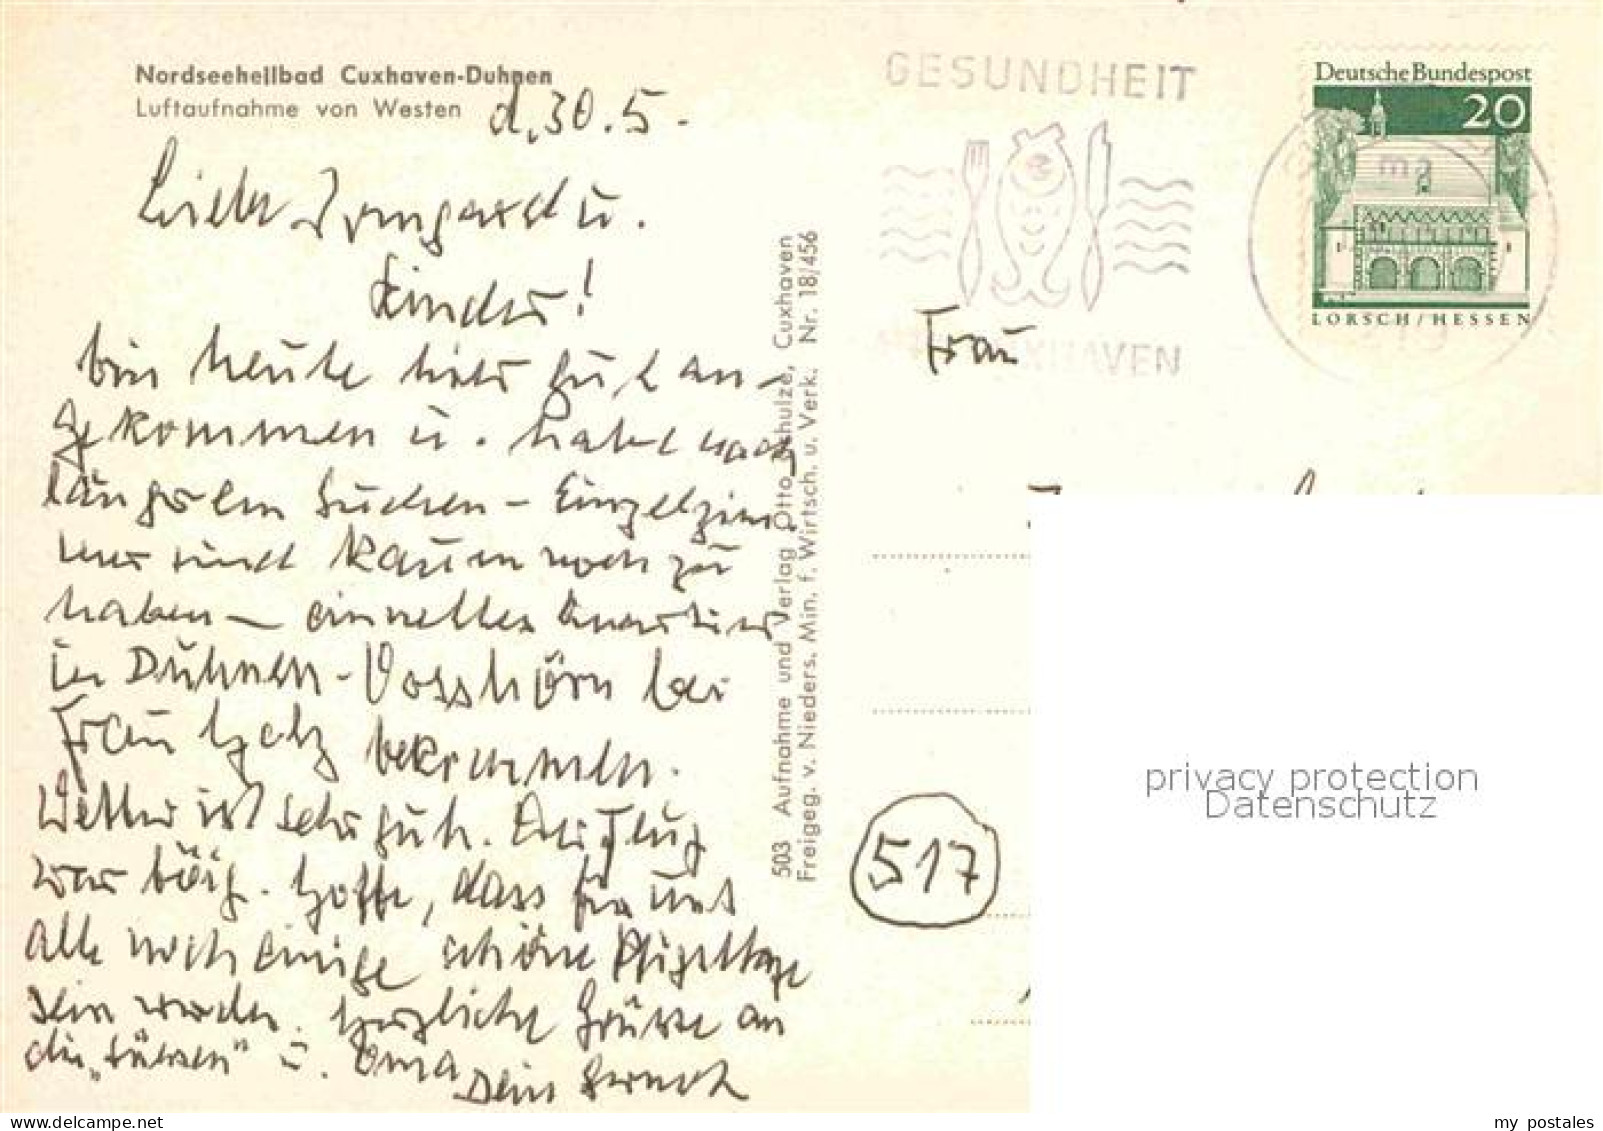 Nordseeheilbad Cuxhaven-Duhnen
Luftaufnahme von Westen
d. 30.5.
Liebe Irmgard u.
Kinder!
bin heute hier gut an-
gekommen u. habe nach
längerem Suchen – Einzelzim-
mer sind kaum noch zu
haben – ein nettes Quartier
in Duhnen-Vosshörn bei
Frau bekommen.
Wetter ist sehr gut. Der Flug
war böig. Hoffe, dass für uns
alle noch einige schöne Pfingsttage
sein werden. Herzliche Grüsse an
die „Süssen" u. Oma Dein
503 Aufnahme und Verlag Otto Schulze, Cuxhaven
Freigeg. v. Nieders. Min. f. Wirtsch. u. Verk. Nr. 18/456
GESUNDHEIT
CUXHAVEN
Deutsche Bundespost
20
LORSCH/HESSEN
Frau
517
privacy protection
Datenschutz
my postales